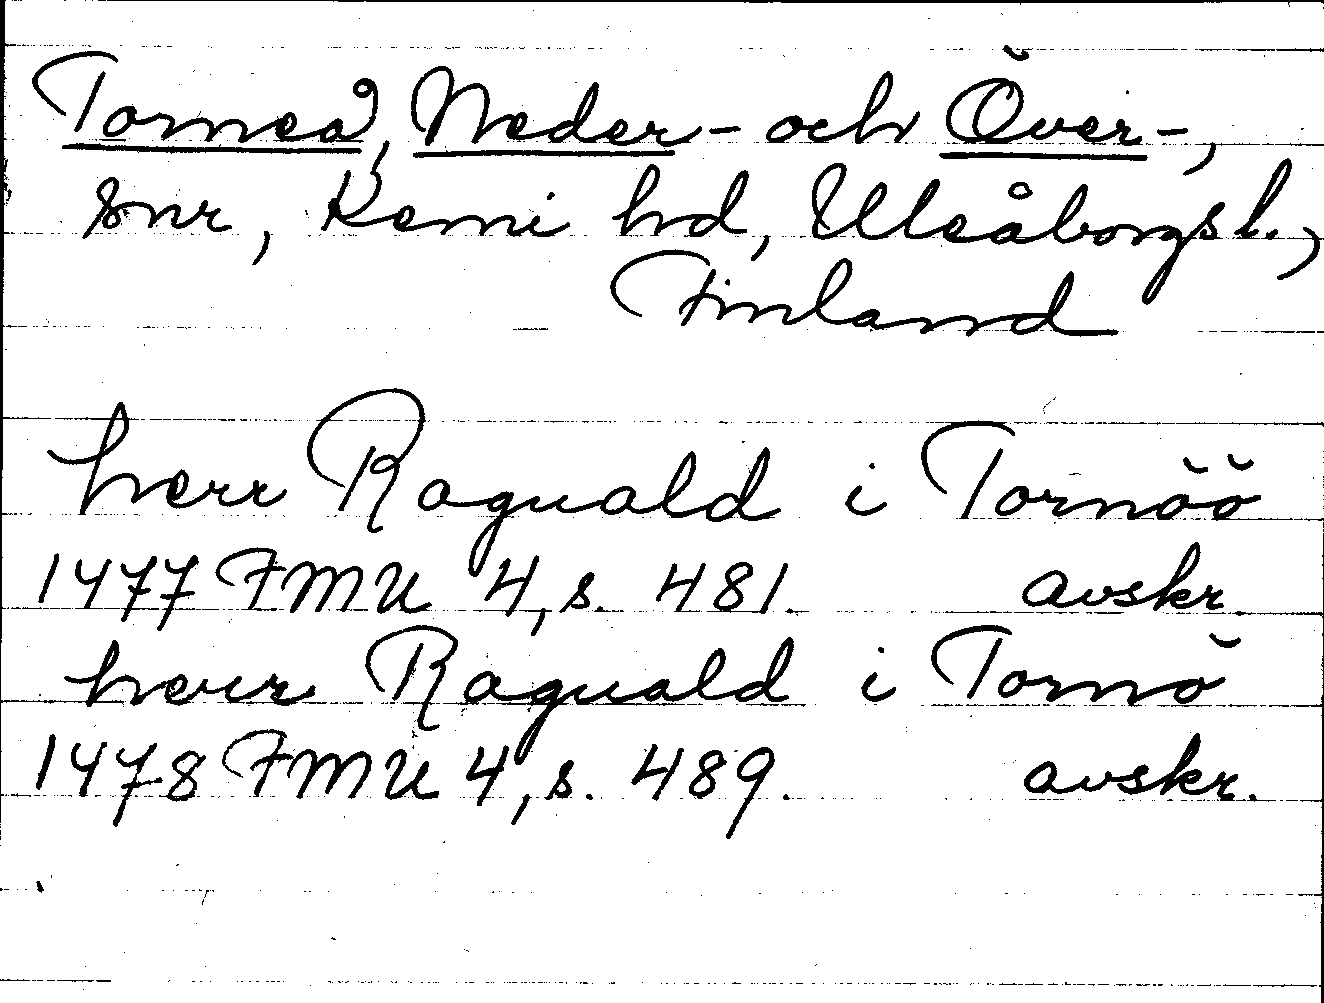 Torneå, Neder- och Över-,
snr, Kemi hd, Uleåborgs l.,
Finland
herr Raguald i Tornöö
1477 FMU 4, s. 481. avskr.
herr Raguald i Tornö
1478 FMU 4, s. 489. avskr.